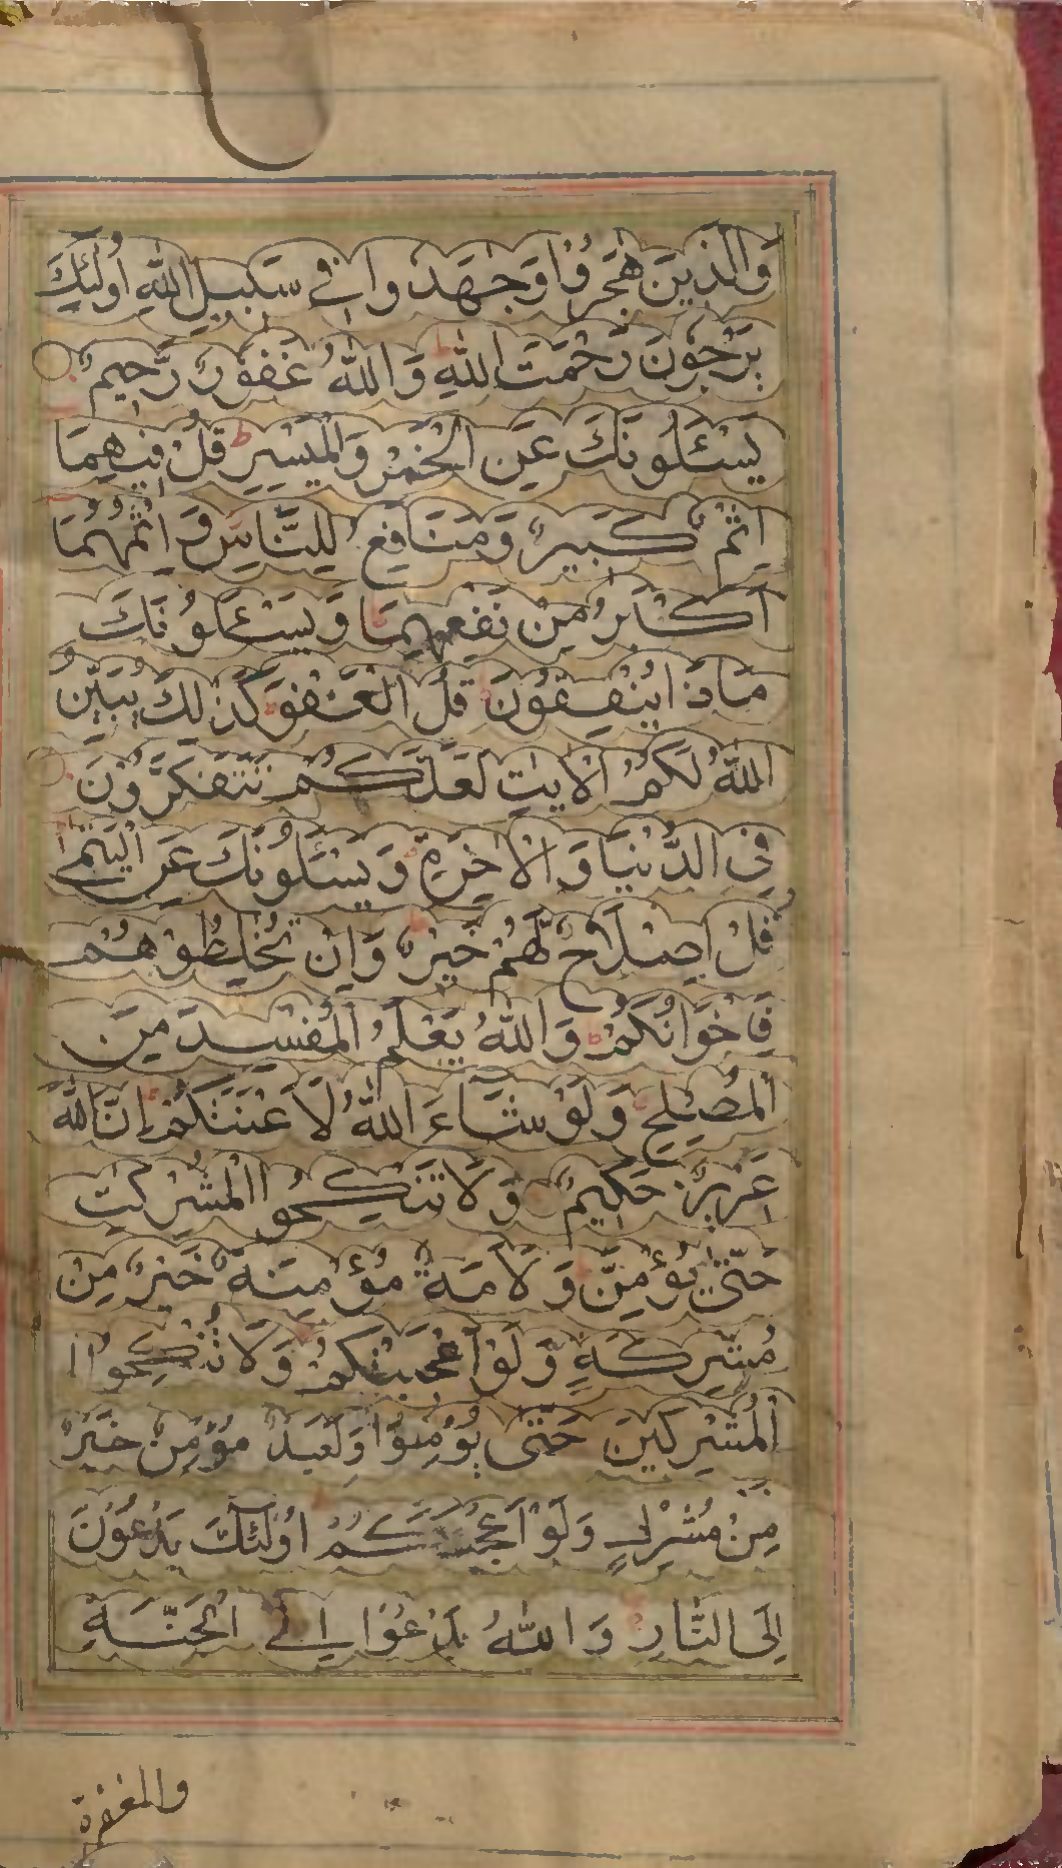 وَالَّذِينَ هٰجَرُوْا وَجٰهَدُوا فِي سَبِيلِ اللّٰهِ اُولٰئِكَ
يَرْجُوْنَ رَحْمَتَ اللّٰهِ ط وَاللّٰهُ غَفُوْرٌ رَّحِيمٌ
يَسْـَٔلُونَكَ عَنِ الْخَمْرِ وَالْمَيْسِرِ ط قُلْ فِيهِمَا
اِثْمٌ كَبِيرٌ وَمَنَافِعُ لِلنَّاسِ وَاِثْمُهُمَا
اَكْبَرُ مِنْ نَفْعِهِمَا ط وَيَسْـَٔلُوْنَكَ
مَاذَا يُنْفِقُوْنَ قُلِ الْعَفْوَ كَذٰلِكَ يُبَيِّنُ
اللّٰهُ لَكُمُ الْاٰيٰتِ لَعَلَّكُمْ تَتَفَكَّرُوْنَ
فِى الدُّنْيَا وَالْاٰخِرَةِ ط وَيَسْـَٔلُوْنَكَ عَنِ الْيَتٰمٰى
قُلْ اِصْلَاحٌ لَّهُمْ خَيْرٌ ط وَاِنْ تُخَالِطُوْهُمْ
فَاِخْوَانُكُمْ ط وَاللّٰهُ يَعْلَمُ الْمُفْسِدَ مِنَ
الْمُصْلِحِ ط وَلَوْ شَاءَ اللّٰهُ لَاَعْنَتَكُمْ ط اِنَّ اللّٰهَ
عَزِيْزٌ حَكِيمٌ وَلَا تَنْكِحُوا الْمُشْرِكٰتِ
حَتّٰى يُؤْمِنَّ وَلَاَمَةٌ مُؤْمِنَةٌ خَيْرٌ مِنْ
مُشْرِكَةٍ وَّلَوْ اَعْجَبَتْكُمْ وَلَا تُنْكِحُوا ا
الْمُشْرِكِينَ حَتّٰى يُؤْمِنُوْا وَلَعَبْدٌ مُؤْمِنٌ خَيْرٌ
مِنْ مُشْرِكٍ وَلَوْ اَعْجَبَكُمْ اُولٰئِكَ يَدْعُوْنَ
اِلَى النَّارِ وَاللّٰهُ يَدْعُوْا اِلَى الْجَنَّةِ
والمغفرة